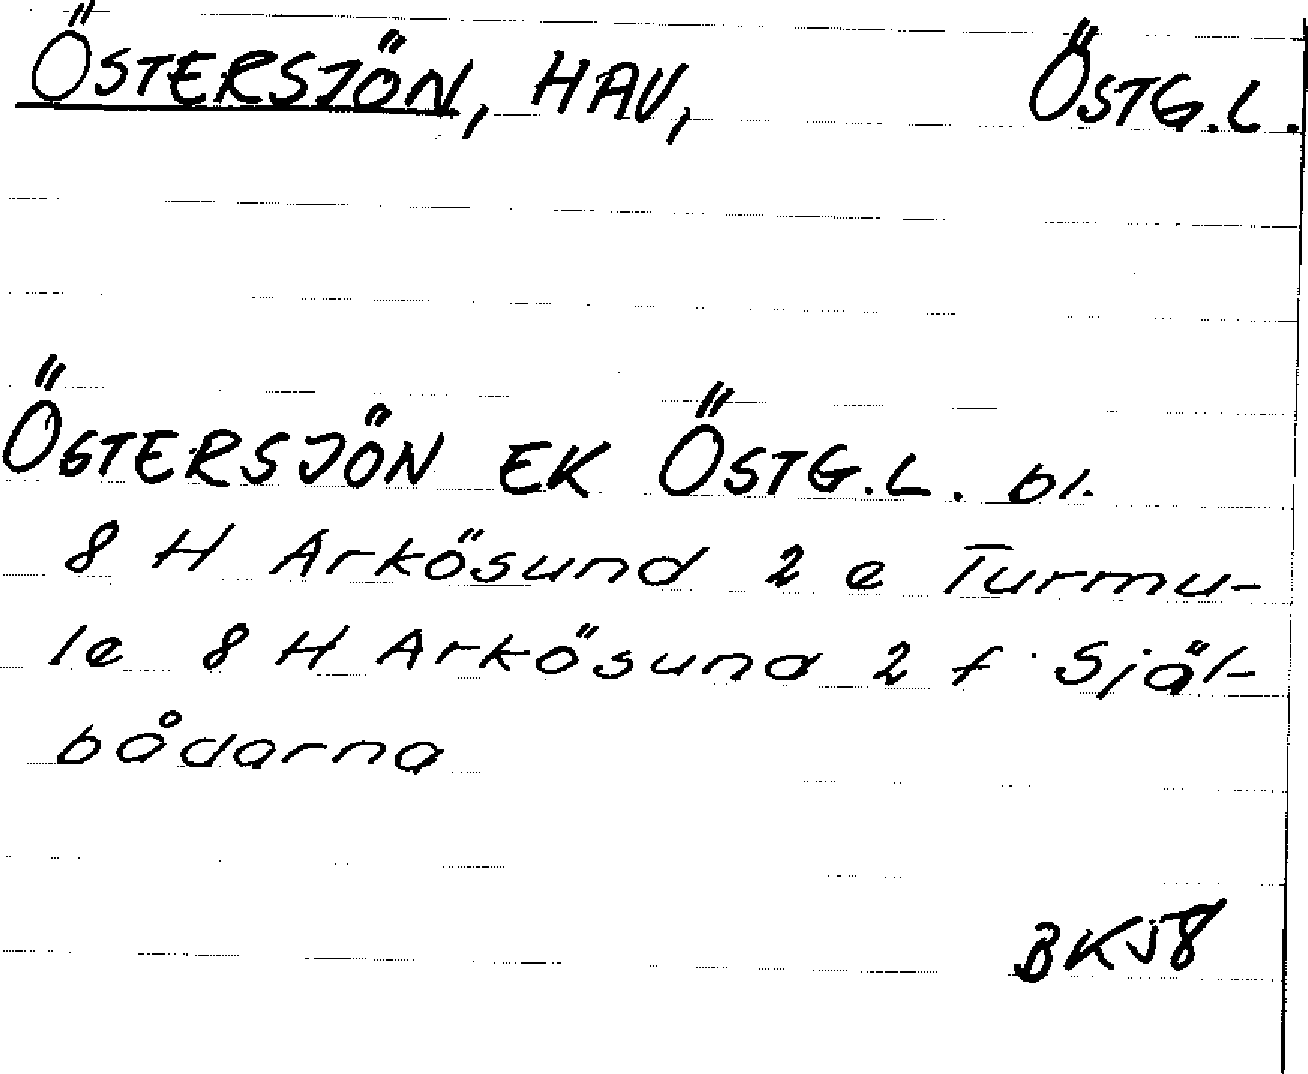 ÖSTERSJÖN, HAV, ÖSTG.L.
ÖSTERSJÖN EK ÖSTG.L. bl.
8 H Arkösund 2 e Turmu-
le 8 H Arkösund 2 f Själ-
bådarna
BK58